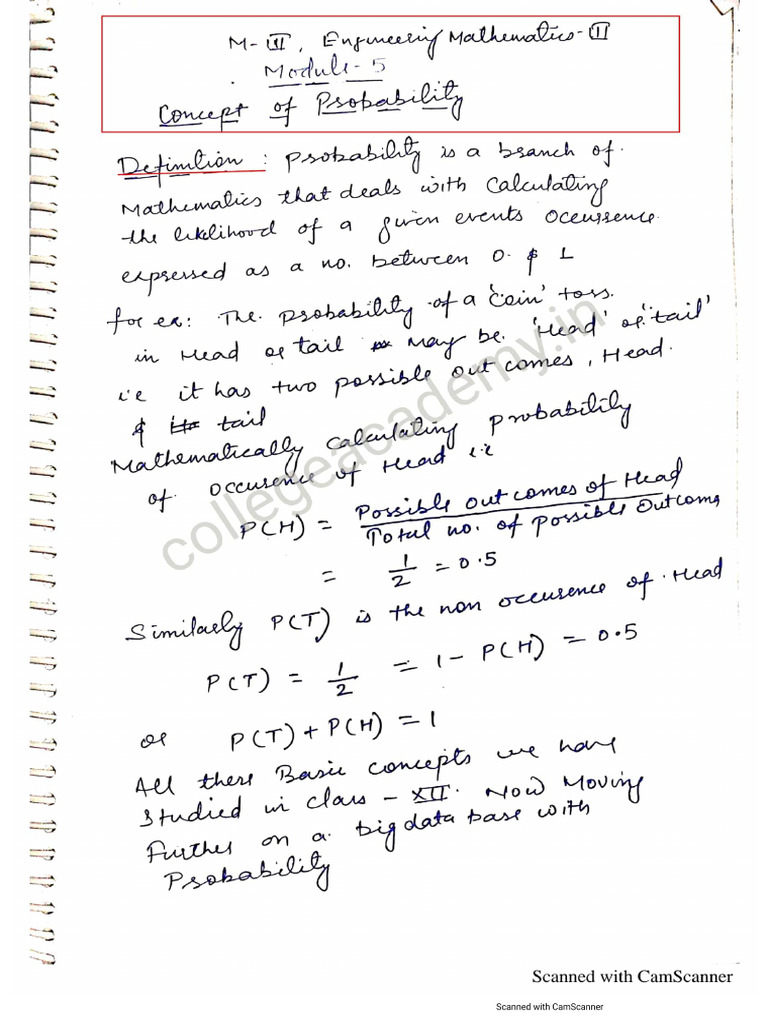 M-III, Engineering Mathematics-III
Module-5
Concept of Probability
Definition: Probability is a branch of
Mathematics that deals with Calculating
the likelihood of a given events occurrence
expressed as a no. between 0. & 1
for ex: The probability of a 'Coin' toss.
in Head or tail may be. 'Head' or 'tail'
i.e it has two possible out comes, Head.
& tail
Mathematically calculating probability
of. occurence of Head i.e
P(H) = Possible outcomes of Head
Total no. of possible Outcome
= 1/2 = 0.5
Similarly P(T) is the non occurence of Head
P(T) = 1/2 = 1 - P(H) = 0.5
or P(T) + P(H) = 1
All these Basic concepts we have
studied in class - XII. Now Moving
further on a big data base with
Probability
collegeacademy.in
Scanned with CamScanner
Scanned with CamScanner